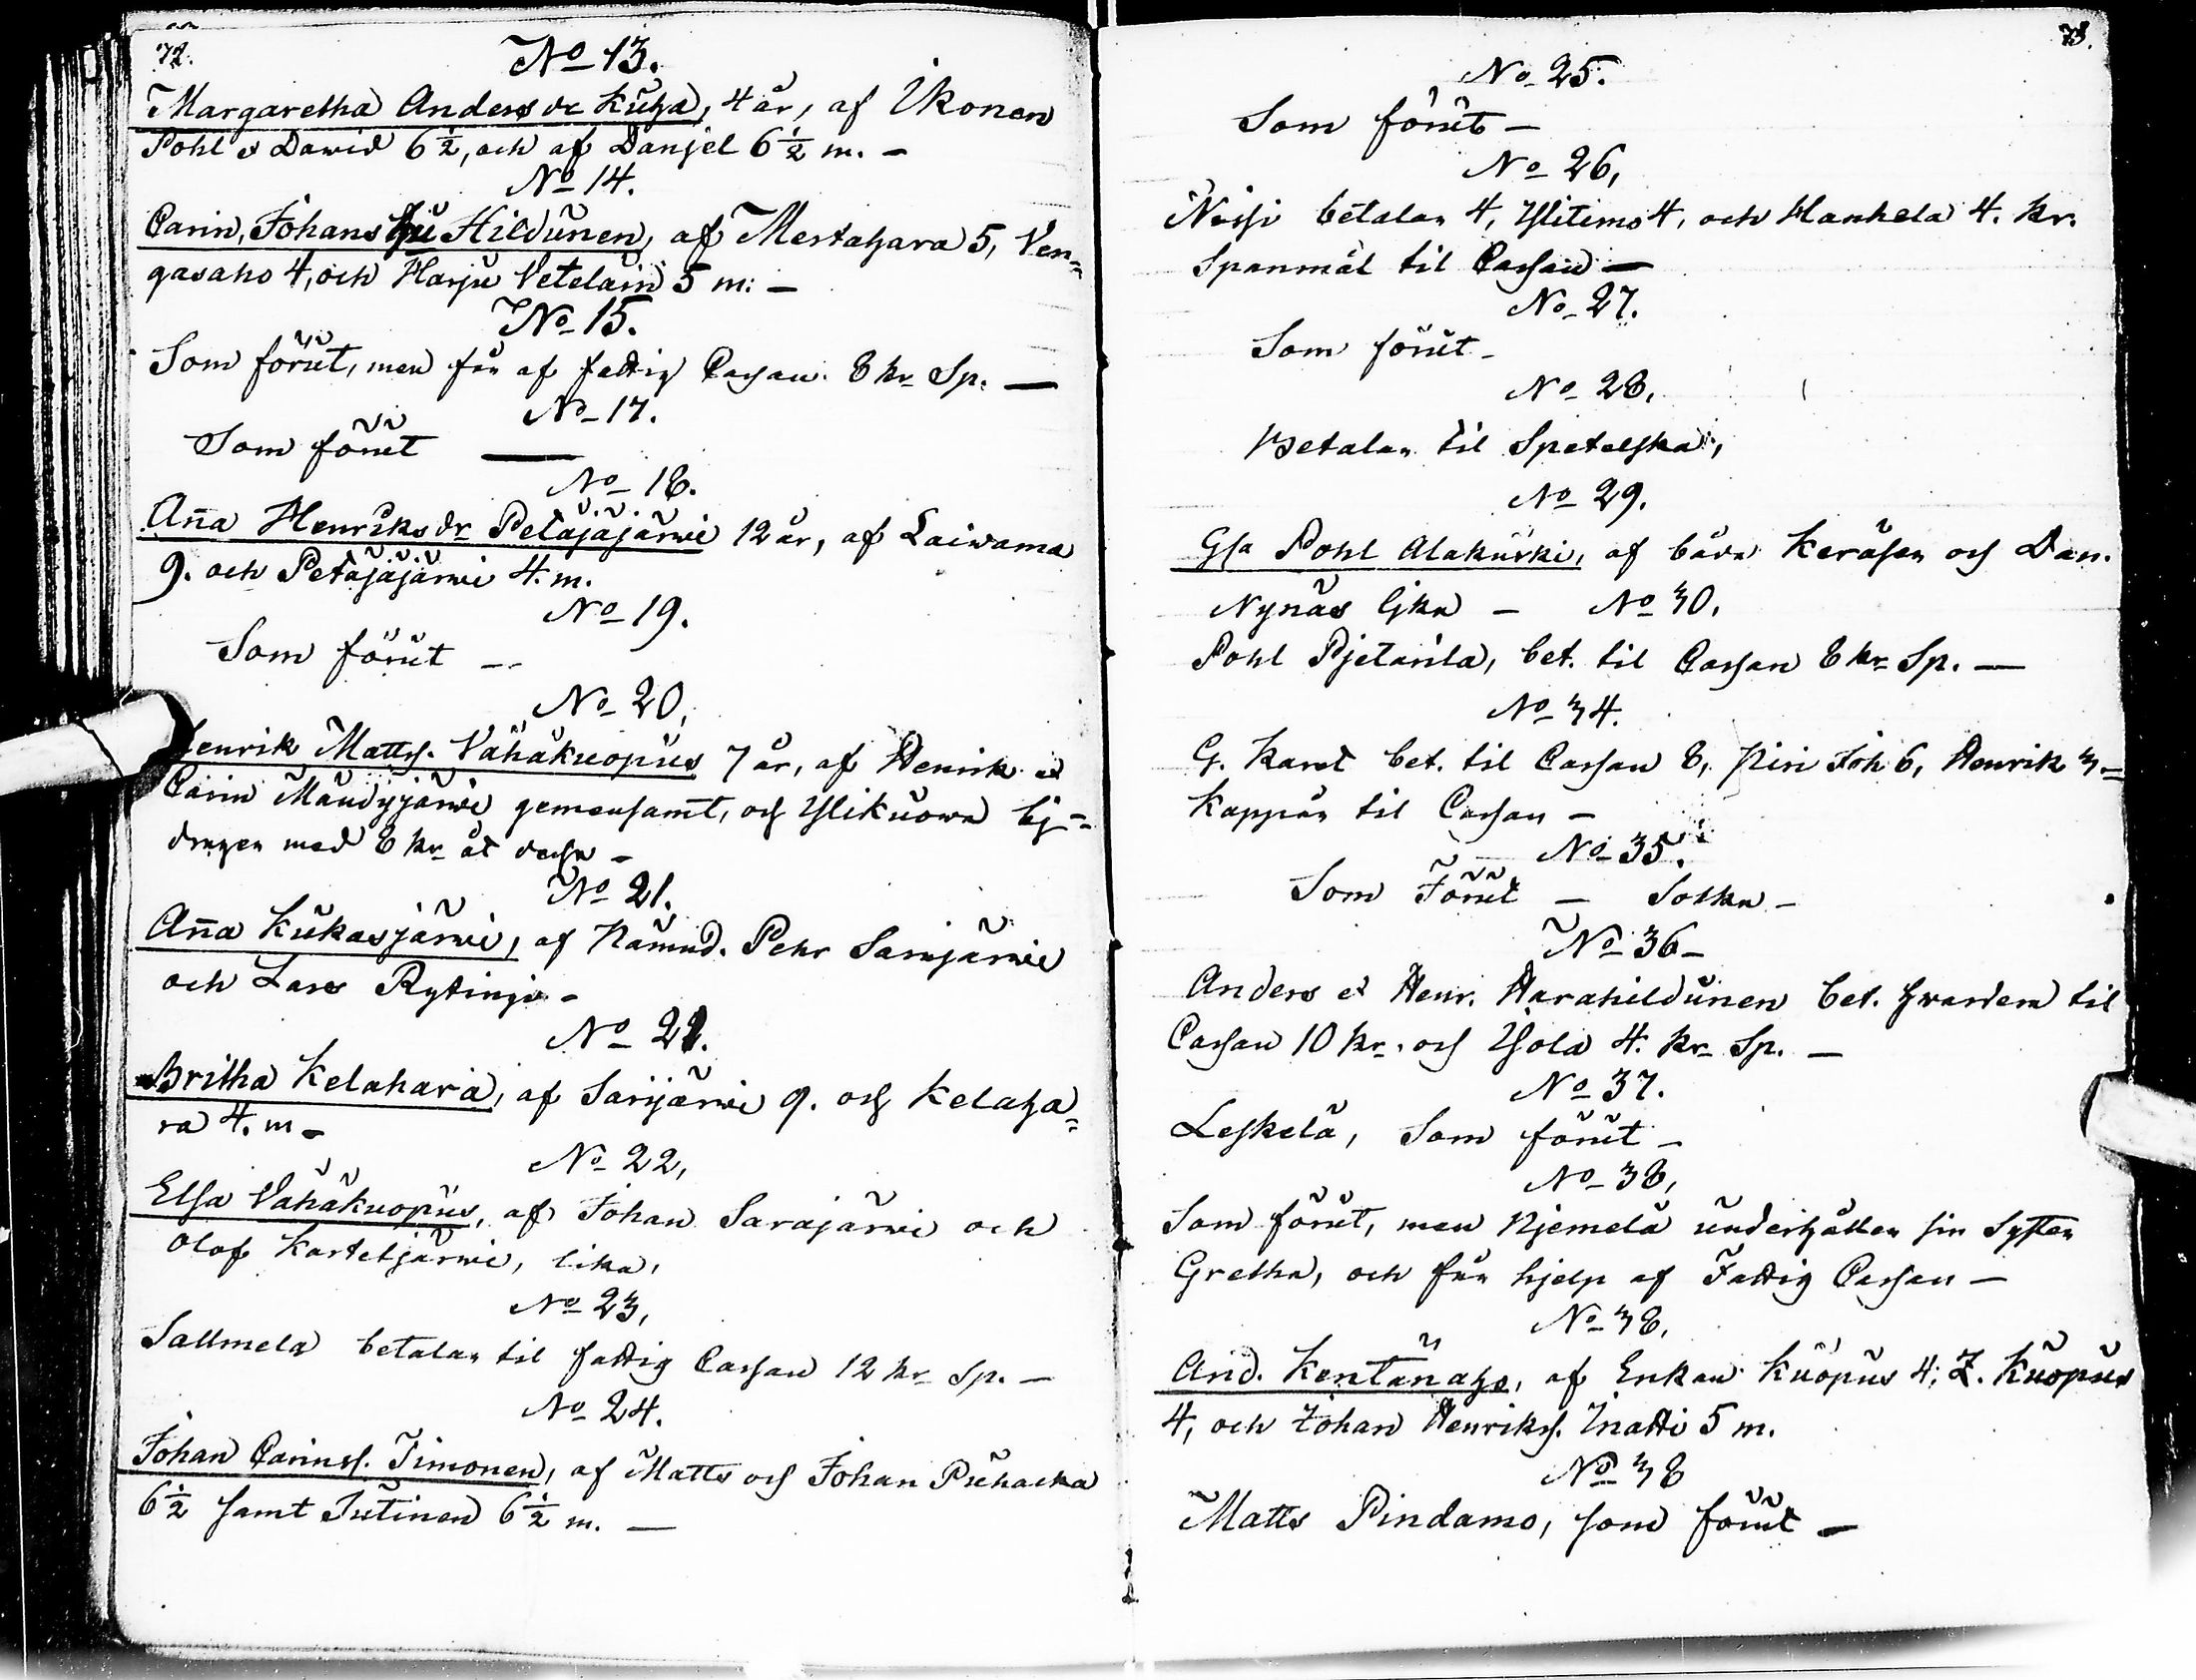 72.
No 13.
Margaretha Anders dr Kuha, 4 år, af Ikonen
Pohl o Dawid 6 1/2, och af Danjel 6 1/2 m. –
No 14.
Carin, Johans hu Hildunen, af Mertahara 5, Ven-
gasaho 4, och Harju Vetelain 5 m: –
No 15.
Som förut, men får af fattig Cassan 8 kr Sp. –
No 17.
Som förut –
No 18.
Anna Henriksdr Petäjäjärwi 12 år, af Laiwama
9. och Petäjäjärwi 4. m.
No 19.
Som förut –
No 20,
Henrik Mattss. Vähäkuopus 7 år, af Henrik et
Carin Mändyjärwi gemensamt, och Ylikuowa bij-
drager med 8 kr åt dessa –
No 21.
Anna Kukasjärwi, af Nämnd. Pehr Sarijärwi
och Lars Rytinji –
No 22.
Britha Kelahara, af Sarijärwi 9. och Kelaha-
ra 4. m –
No 22,
Elsa Vähäkuopus, af Johan Sarajärwi och
Olof Korteljärwi, lika,
No 23,
Sallmela betalar til fattig Cassan 12 kr Sp. –
No 24.
Johan Carinss. Timonen, af Matts och Johan Puhacka
6 1/2 samt Tutinen 6 1/2 m. –
73.
No 25.
Som förut –
No 26,
Neisi betalar 4, Ylitimo 4, och Hankela 4. kr.
Spanmål til Cassan –
No 27.
Som förut –
No 28,
Betalar til Spetelska,
No 29.
Gla Pohl Alakurki, af båda Keräsen och Dan.
Nynäs lika – No 30.
Pohl Pjetarila, bet. til Cassan 8 kr Sp. –
No 34.
G. Karet bet. til Cassan 8, Piri Joh 6, Henrik 3 –
Kappar til Cassan –
No 35.
Som Förut – Sotka –
No 36 –
Anders et Henr. Harahildunen bet. hwardera til
Cassan 10 kr. och Yola 4. kr Sp. –
No 37.
Leskelä, Som förut –
No 38,
Som förut, men Njemelä underhåller sin Syster
Gretha, och får hjelp af Fattig Cassan –
No 38,
And. Kentänaho, af Enkan Kuopus 4, Z. Kuopus
4, och Johan Henrikss. Inatti 5 m.
No 38
Matts Pindamo, som förut –